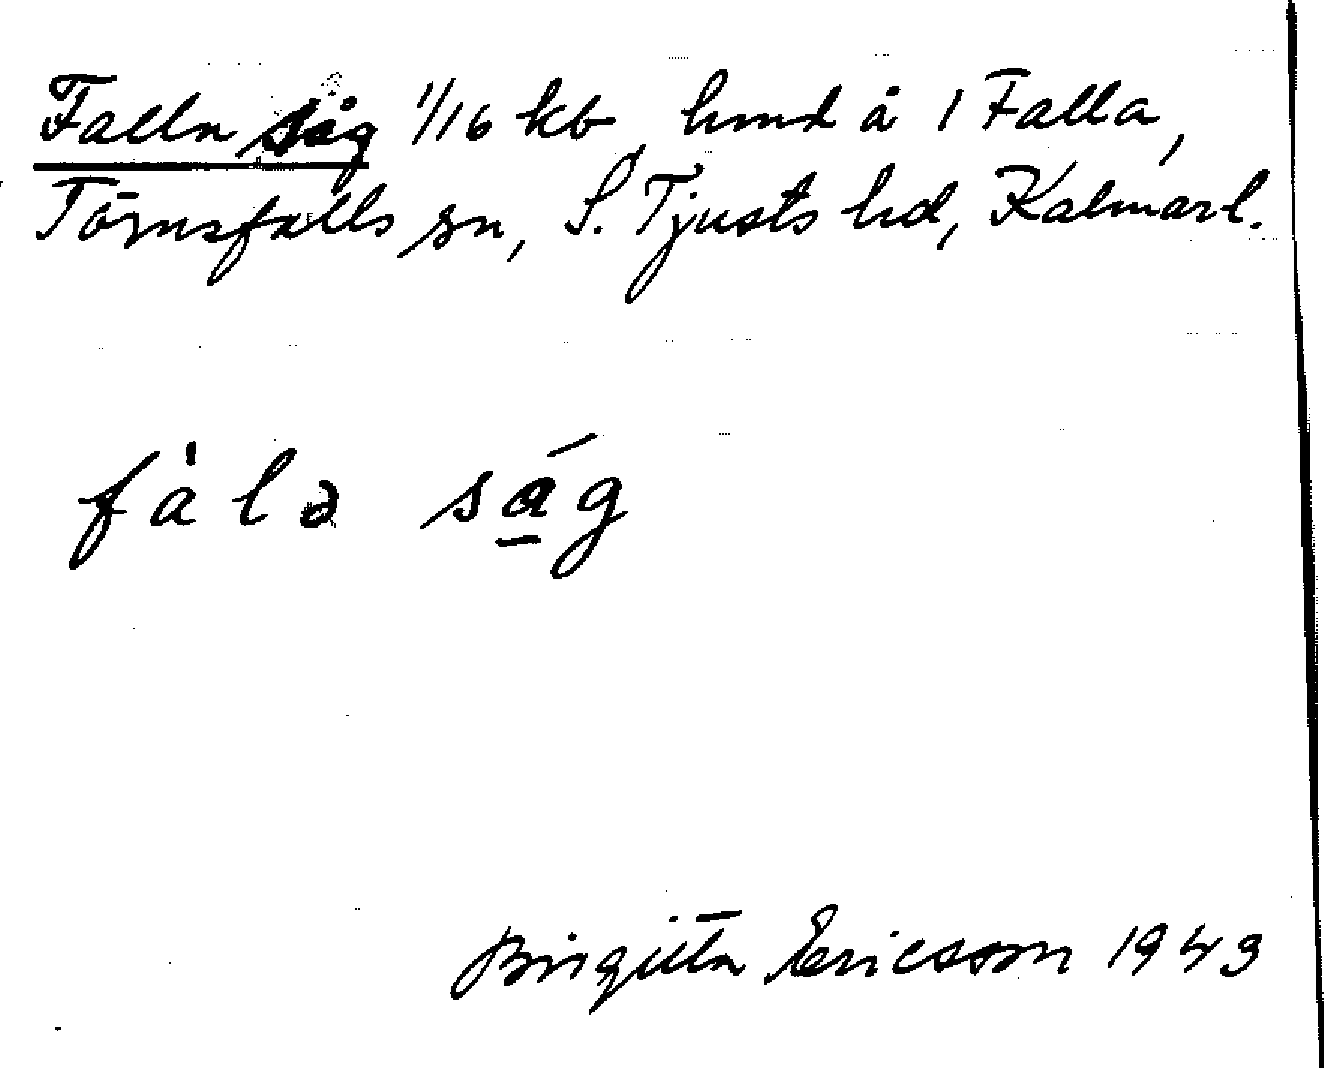 Falla såg 1/16 kb hmd å 1 Falla,
Törnsfalls sn, S. Tjusts hd, Kalmar l.
fàlə ság
Birgitta Ericsson 1943